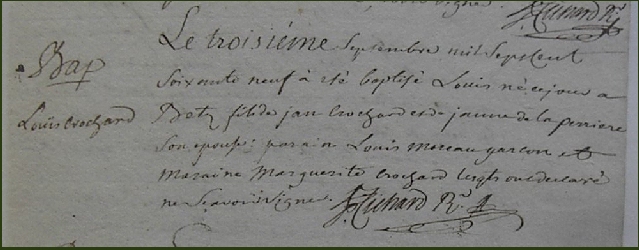 J. Richard
Le troisiéme Septembre mil Sept Cent
Bap
Soixante neuf à été baptisé Louis né ce jour a
Louis Crochard
fils de jan Crochard et de jaune de la
Son epouse: parain Louis Moreau garcon et
Maraine Marguerite Crochard lesqts ont declaré
ne Scavoir Signer.